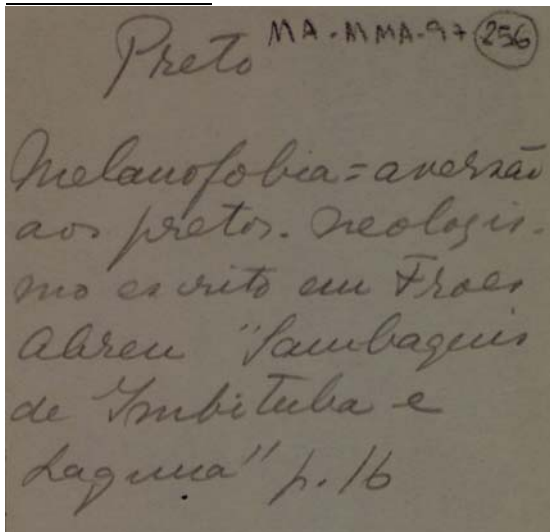 Preto MA-MMA-97 256
Melanofobia = aversão
aos pretos. Neologis-
mo escrito em Froes
Abreu "Sambaquis
de Imbituba e
Laguna" p. 16